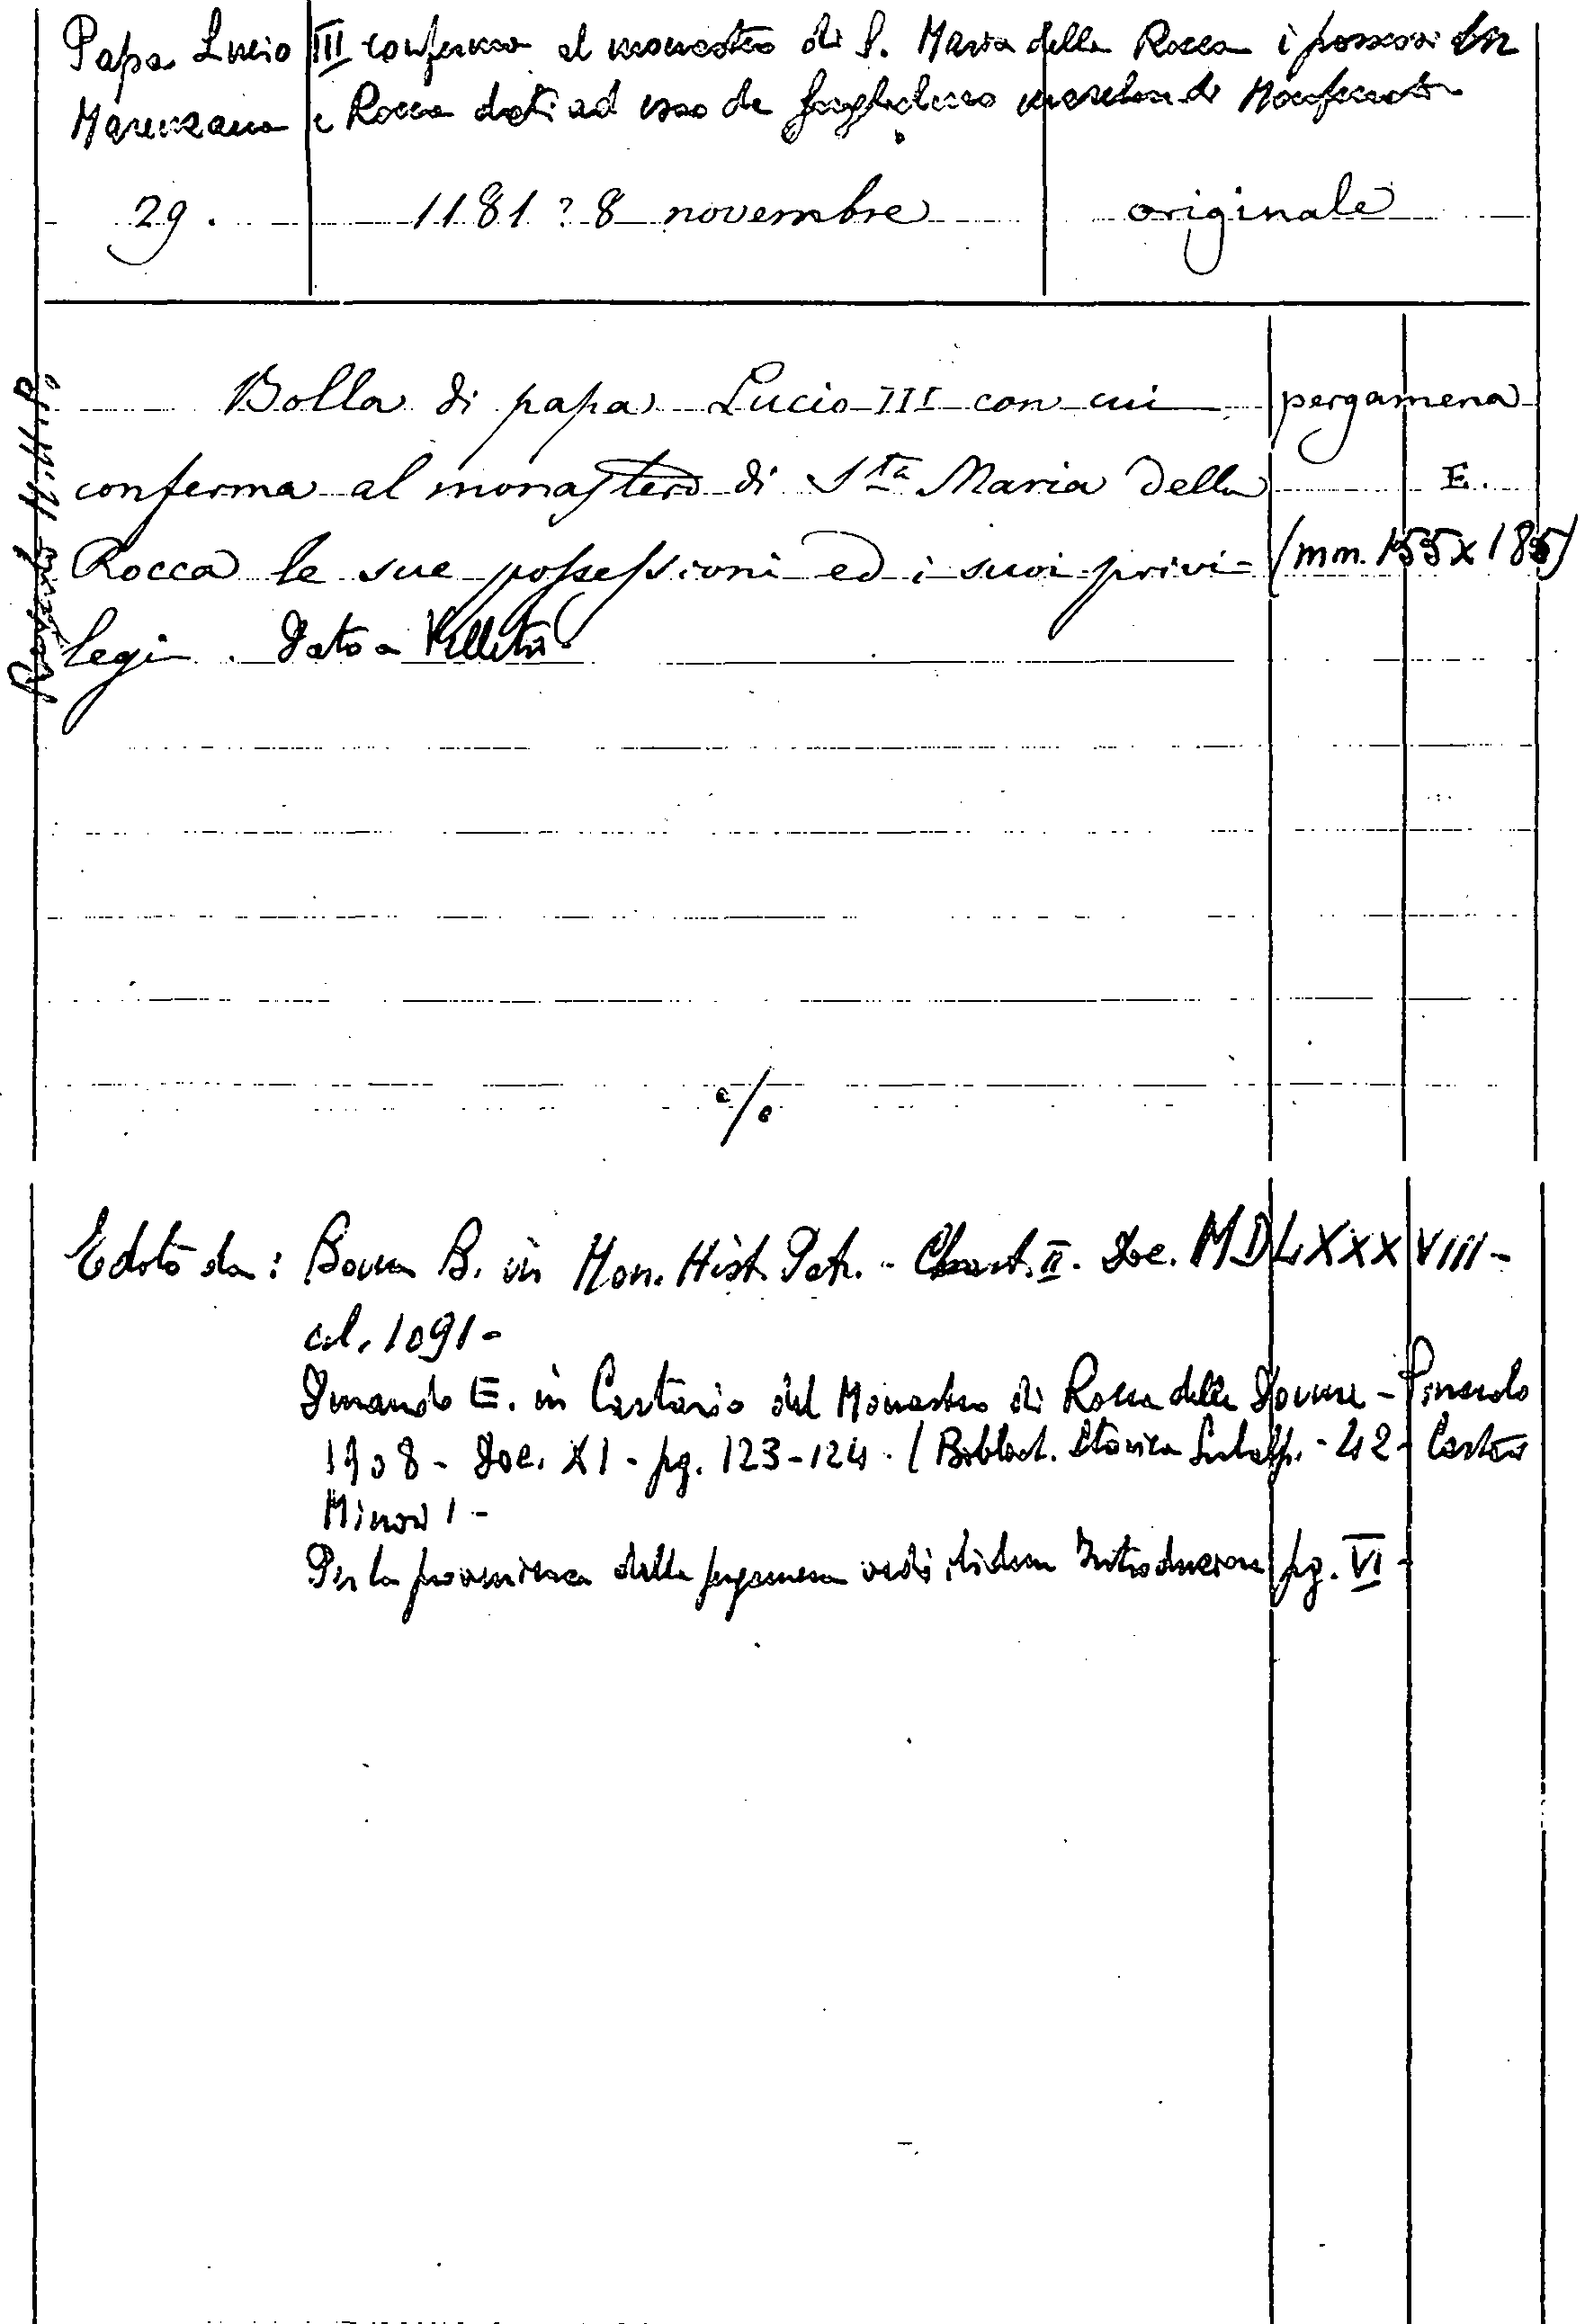 Papa Lucio III conferma al monastero di S. Maria della Rocca i possessi in
Marenzana e Rocca dati ad esso da Guglielmo marchese di Monferrato
29. 1181? 8 novembre originale
Bolla di papa Lucio III con cui pergamena
conferma al monastero di Sta Maria della E.
Rocca le sue possessioni ed i suoi privi- (mm. 155 x 185)
legi. Dato a Velletri
c/o
Edito da: B. in Mon. Hist. Patr. - Chart. II. Doc. MDLXXXVIII -
col. 1091 -
Durando E. in Cartario del Monastero di Rocca delle Donne - Pinerolo
1908 - Doc. XI - pg. 123-124. (Bibliot. Storica Subalp. - 42 - Cartari
Minori 1 -
Per la provenienza della pergamena vedi ibidem Introduzione pg. VI -